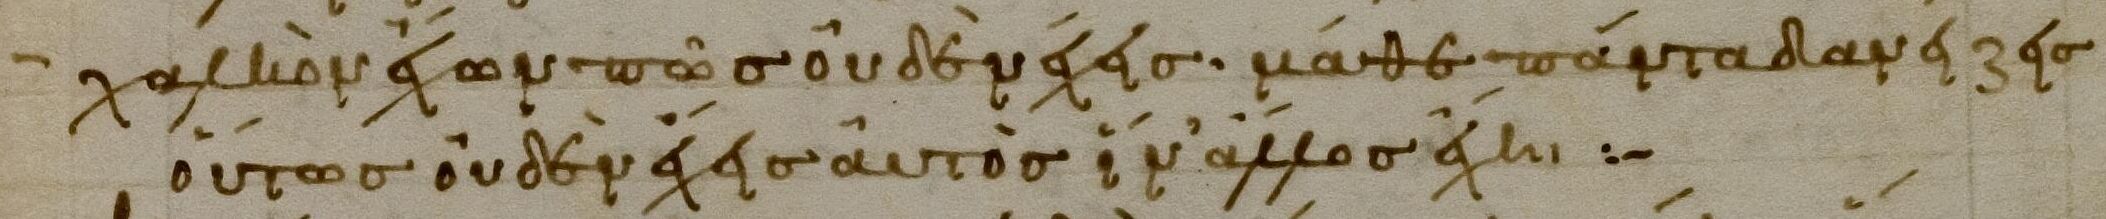 χαλκὸν ἔχων πῶς οὐδὲν ἔχεις· μάθε πάντα δανείζεις
οὕτως οὐδὲν ἔχεις αὐτὸς ἵν' ἄλλος ἔχῃ :-